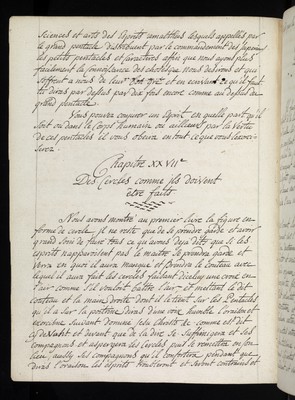 Sciences et arts des Esprits amiables lesquels appelles par
le grand pentacle distribuent par le commandement des Superieurs
les petits pentacles et caracteres afin que nous ayons plus
facilement la connoissance des choses que nous desirons et qui
s'offrent a nous de leur et en ecrivant ce qu'il faut
tu diras par depuis par dix fois encore comme au dessus du
grand pentacle.
Vous pouvez conjurer un Esprit en quelle part qu'il
soit ou dans le Corps humain ou ailleurs par la Vertu
de ces pentacles il vous obeira en tout ce que vous
Chapitre XXVII.e
Des Cercles comme ils doivent
être faits
Nous avons montré au premier livre la figure en
forme de cercle, il ne reste que de se prendre garde et avoir
grand soin de faire tout ce qu'avons deja dit que si les
esprits n'apparoissent pas le maitre se prendra garde
verra en quoi il aura manqué et prendra le couteau avec
lequel il aura fait les cercles faisant dicelui une croix en
l'air comme s'il vouloit battre l'air, et mettant le dit
couteau et la main droite dont il le tient sur les Pentacles
qu'il a sur la poitrine dira d'une voix humble l'oraison et
exorcisme suivant domine jesu Christe &c comme est dit
et avant que de la dire se suffumigera et ses
compagnons et aspergera les Cercles puis se remettra en son
lieu aussy ses compagnons qu'il confortera pendant que
dirat l'oraison les esprits et seront contraints et